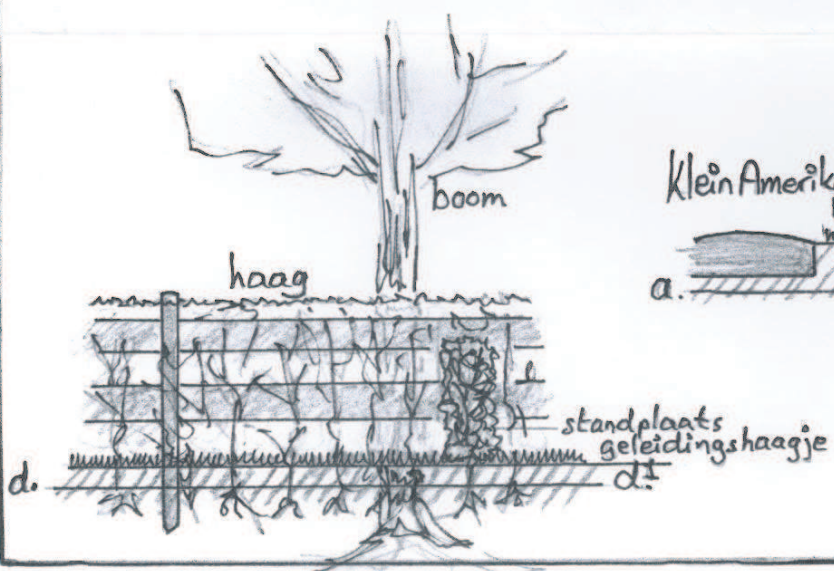 boom
Klein Amerik
haag
a.
standplaats
geleidingshaagje
d.
d!